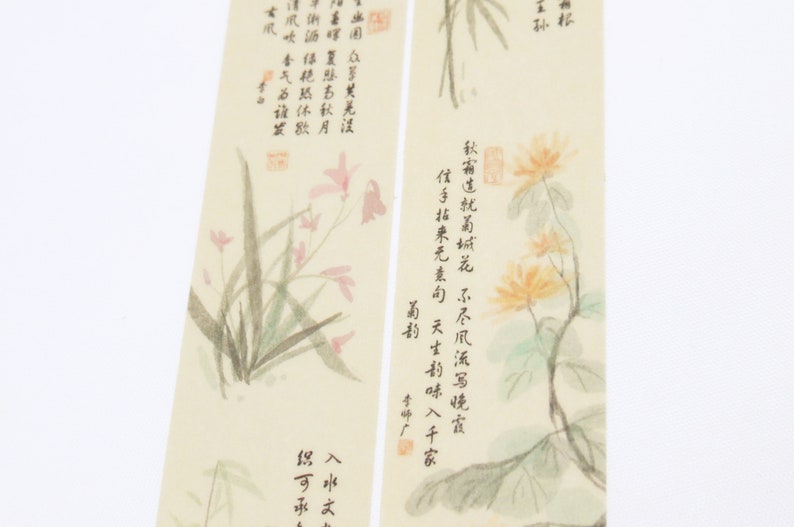 生幽园 众草共芜没
阳春晖 复悲高秋月
早淅沥 绿艳恐休歇
清风吹 香气为谁发
古风
李白
入水文
织可承
霜根
王孙
秋霜造就菊城花 不尽风流写晚霞
信手拈来无意句 天生韵味入千家
菊韵
李师广